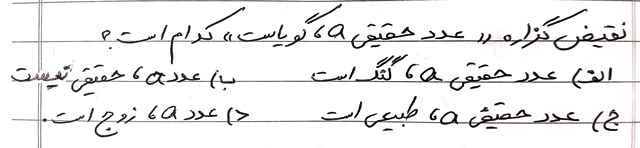 نقیض گزاره «عدد حقیقی a، گویاست» کدام است؟
الف) عدد حقیقی a، گنگ است ب) عدد a، حقیقی نیست
ج) عدد حقیقی a، طبیعی است د) عدد a، زوج است.